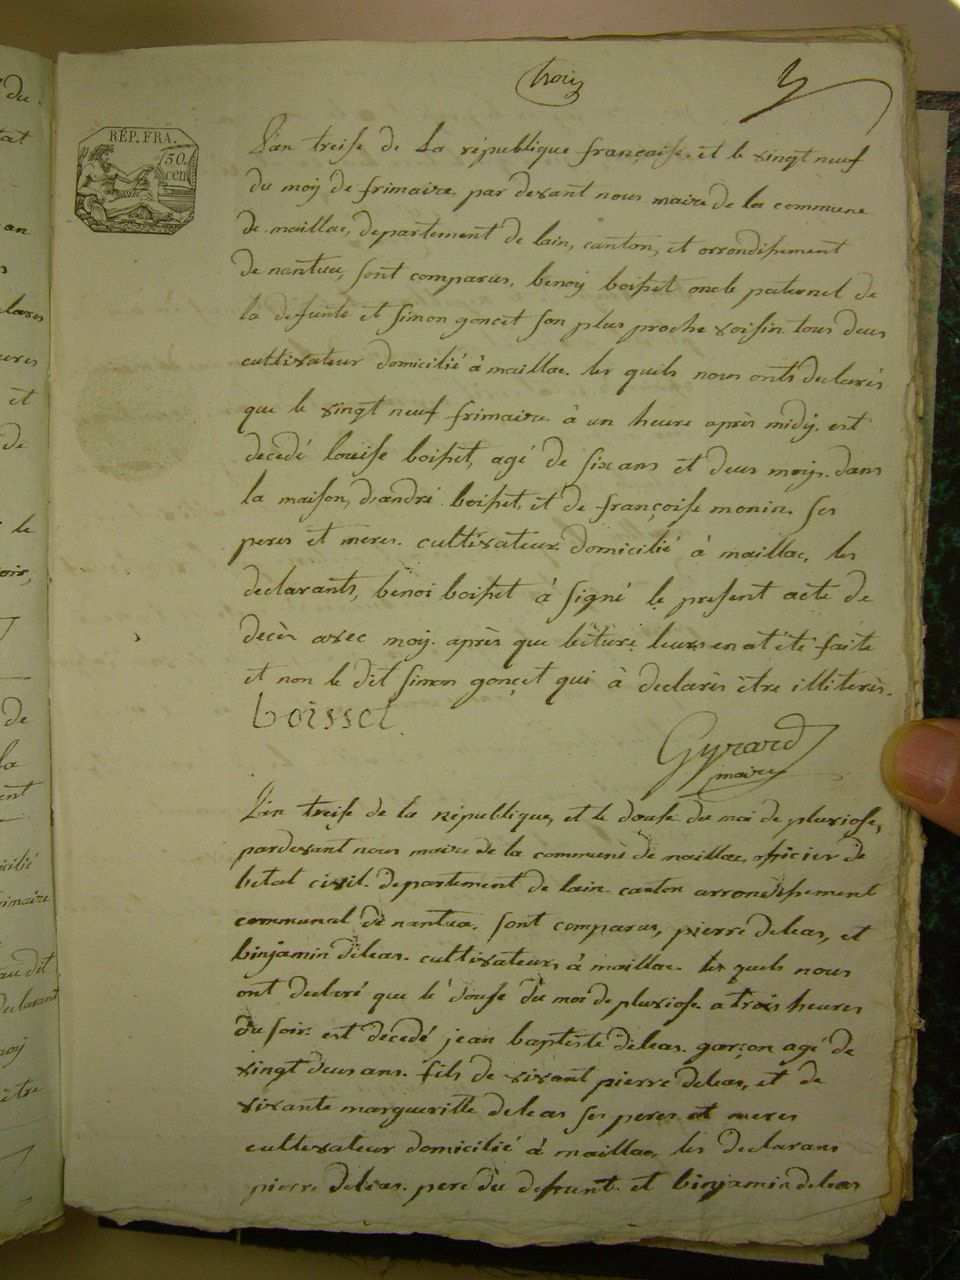 trois
RÉP. FRA.
50
cen
L'an treise de La république française et le vingt neuf
du moy de frimaire par devant nous maire de la commune
de maillac, departement de lain, canton, et orrondissement
de nantua, sont comparus, benoy boisset oncle paternel de
la defunte et simon gonçet son plus proche voisin tous deus
cultivateur domicilié à maillac. les quels nous onts declarés
que le vingt neuf frimaire à un heure après midy. est
decedé louise boisset, agé de six ans et deus moys. dans
la maison, d'andré boisset, et de françoise monin. ses
peres et meres. cultivateur domicilié à maillac, les
declarants, benoi boisset à signé le present acte de
decès avec moy. après que lecture leurs en at été faite
et non le dit simon gonçet qui à declarés être illiterés.
boisset
Gyrard
maire
L'an treise de la république, et le douse du moi de pluviose,
pardevant nous maire de la communé de maillac officier de
l'etat civil. departement de lain canton arrondissement
communal de nantua. sont comparus, pierre deleas, et
binjamin deleas. cultivateurs à maillac. les quels nous
ont declaré que le douse du moi de pluviose a trois heures
du soir. est decedé jean baptiste deleas. garçon agé de
vingt deus ans. fils de vivant pierre deleas, et de
vivante margueritte deleas ses peres et meres
cultivateur domicilié à maillac, les declarans
pierre deleas. pere du defrunt. et binjamin deleas